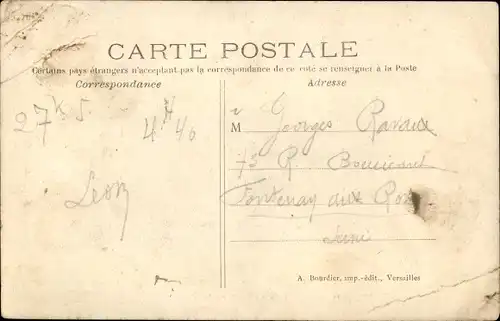 CARTE POSTALE
Certains pays étrangers n'acceptant pas la correspondance de ce coté se renseigner à la Poste
Correspondance
Adresse
27 K 5
4 H 40
Léon
M Georges Ravaux
75 R. Boucicaut
Fontenay aux Roses
Seine
A. Bourdier, imp.-édit., Versailles